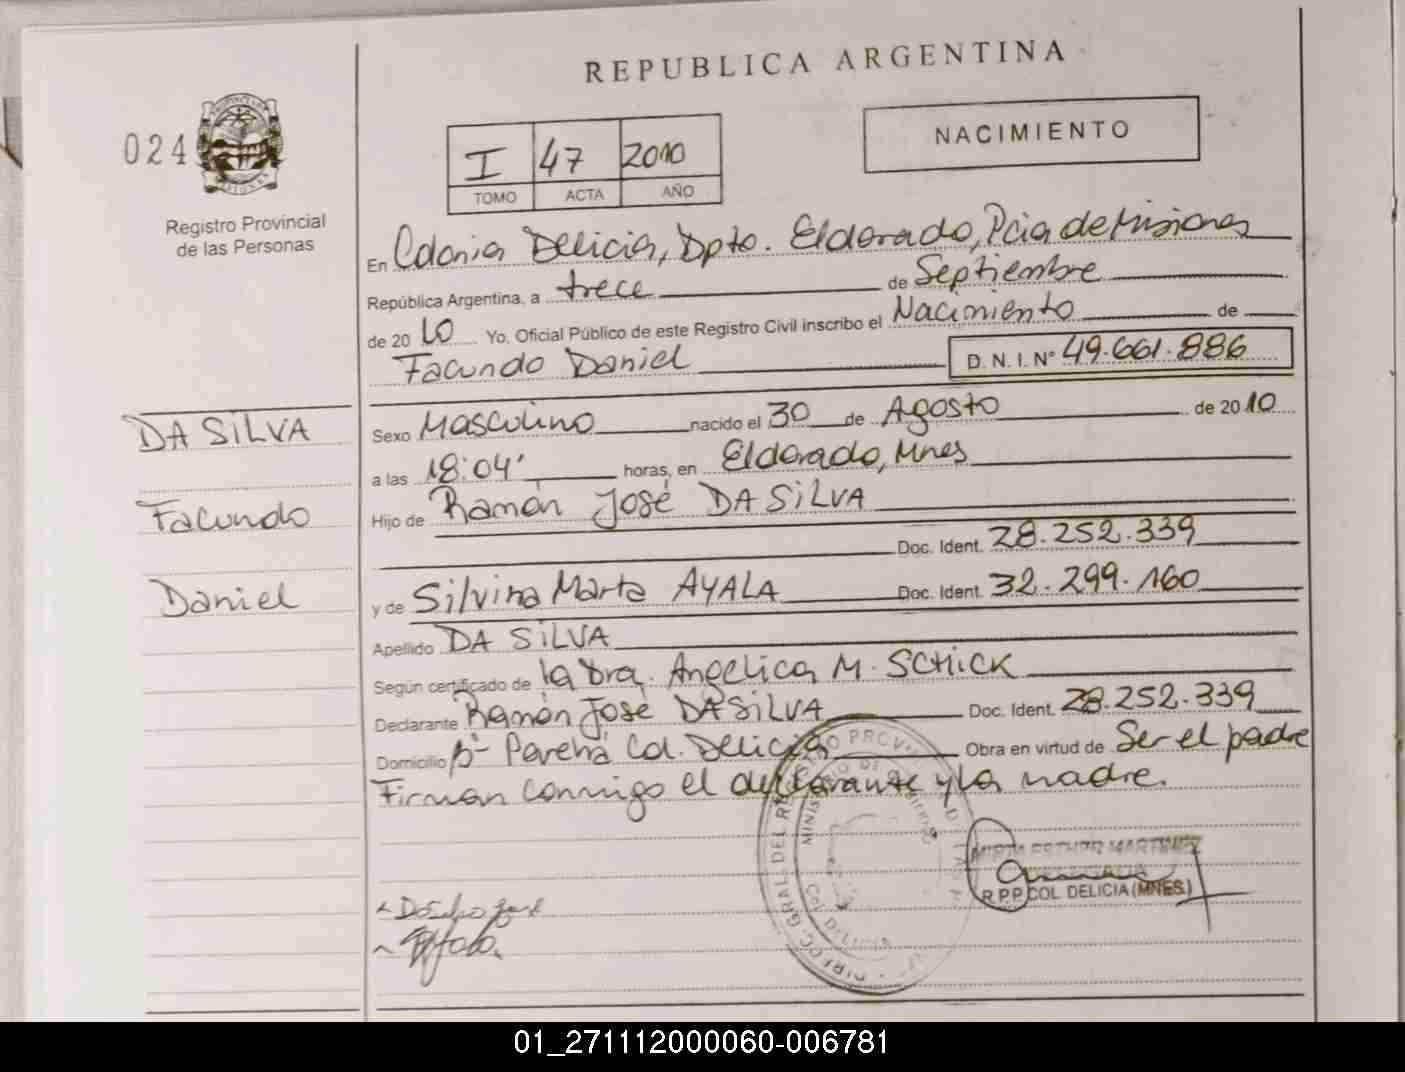 REPUBLICA ARGENTINA
024
NACIMIENTO
I 47 2010
TOMO ACTA AÑO
Registro Provincial
de las Personas
En Colonia Delicia, Dpto. Eldorado, Pcia de Misiones
República Argentina, a trece de Septiembre
de 2010 Yo. Oficial Público de este Registro Civil inscribo el Nacimiento de
Facundo Daniel D.N.I. N° 49.661.886
DA SILVA
Facundo
Daniel
Sexo Masculino nacido el 30 de Agosto de 2010
a las 18:04' horas, en Eldorado, Mnes
Hijo de Ramón José DA SILVA
Doc. Ident. 28.252.339
y de Silvina Marta AYALA Doc. Ident. 32.299.160
Apellido DA SILVA
Según certificado de la Dra. Angelica M. SCHICK
Declarante Ramón José DA SILVA Doc. Ident. 28.252.339
Domicilio Bº Parehá Col. Delicia Obra en virtud de Ser el padre
Firman conmigo el declarante y la madre.
MIRTA ESTHER MARTINEZ
R.P.P. COL DELICIA (MNES.)
01_271112000060-006781